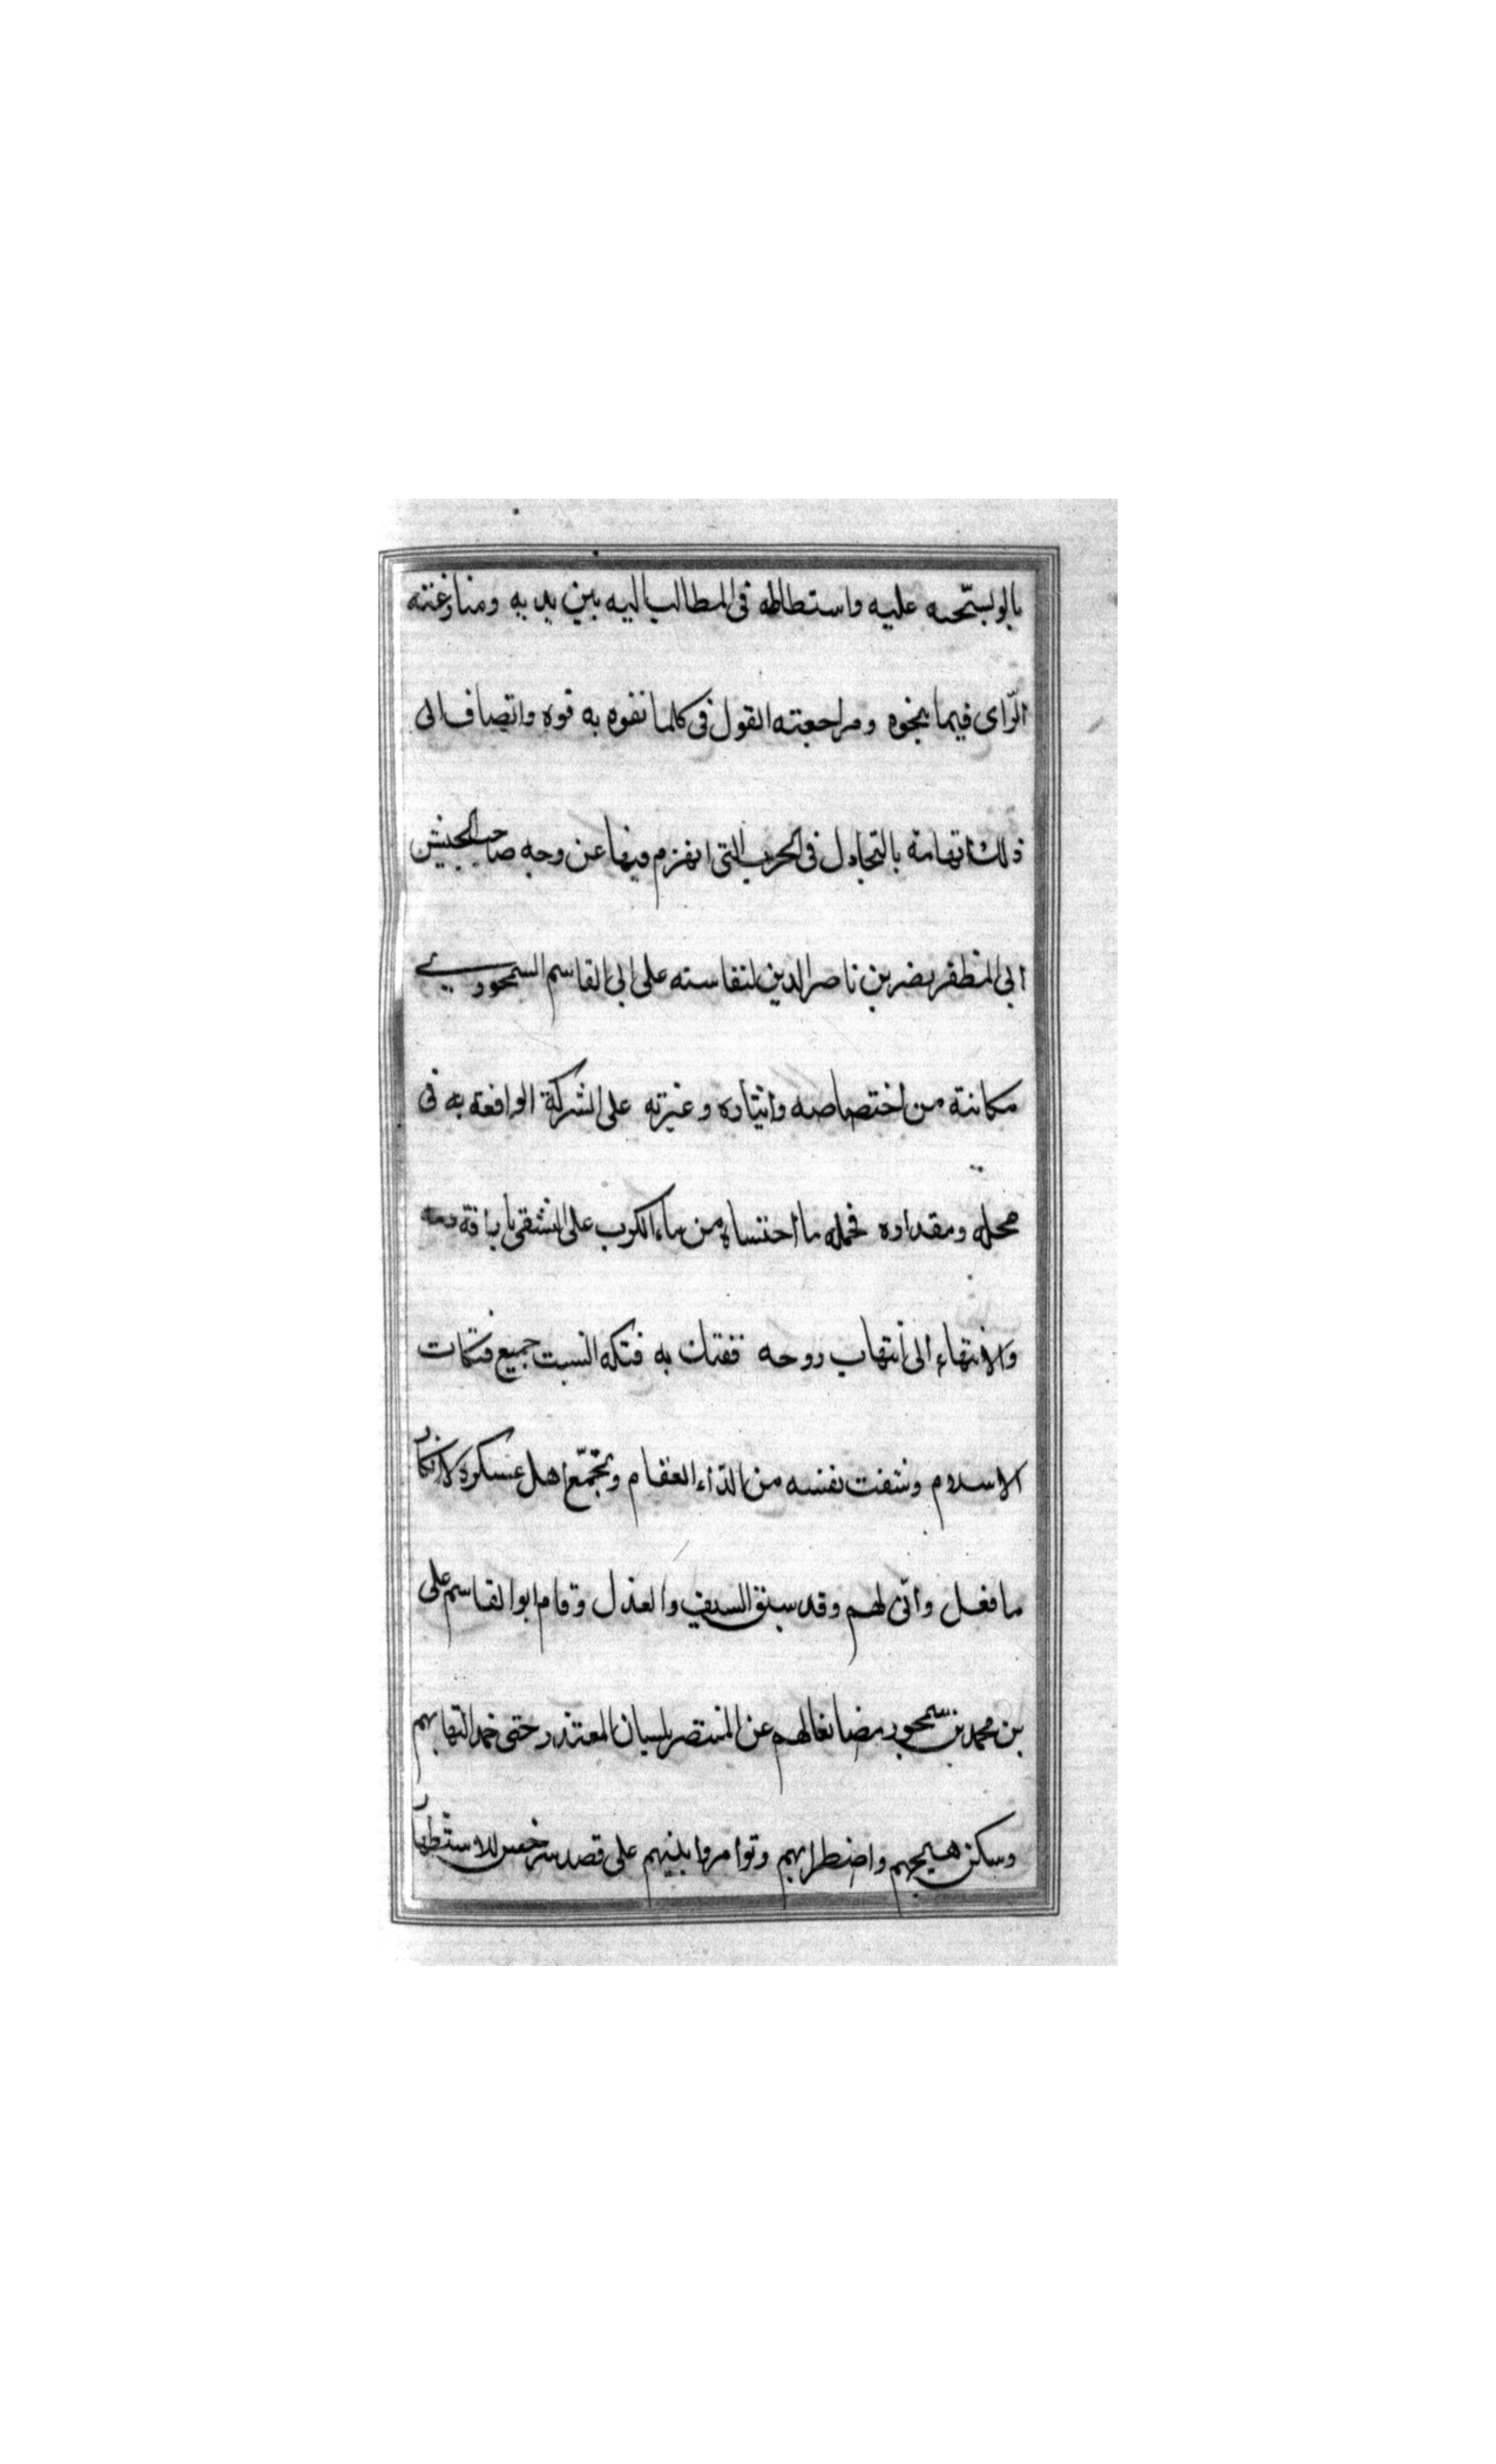 بالو يستحبه عليه واستطاطه فى المطالب اليه بين يديه ومنازعته
الرّاى فيما ينحوه ومراجعته القول فى كلما تفوه به فوه وانضاف الى
ذلك اتهامه بالتجادل فى الحرب التى انهزم فيها عن وجه صاحب الجيش
ابى المظفر نصر بن ناصر الدين لنفاسته على ابى القاسم السمجورى
مكانته من اختصاصه وايثاره وغيرته على الشركة الواقعة به فى
محله ومقداره فحمله ما احتساه من ماء الكرب على التشفى باراقة دمه
والانتهاء الى انتهاب روحه ففتك به فتكه انسيت جميع فتكات
الاسلام وشفت نفسه من الدّاء العقام وتجمّع اهل عسكره لانكار
ما فعل وانّى لهم وقد سبق السيف والعذل وقام ابو القاسم على
بن محمد بن سمجور مضانعا لهم عن المنتصر بلسان المعتذر حتى خمد التهابهم
وسكن هيجهم واضطرابهم وتوامروا بينهم على قصد سرخس للاستظهار